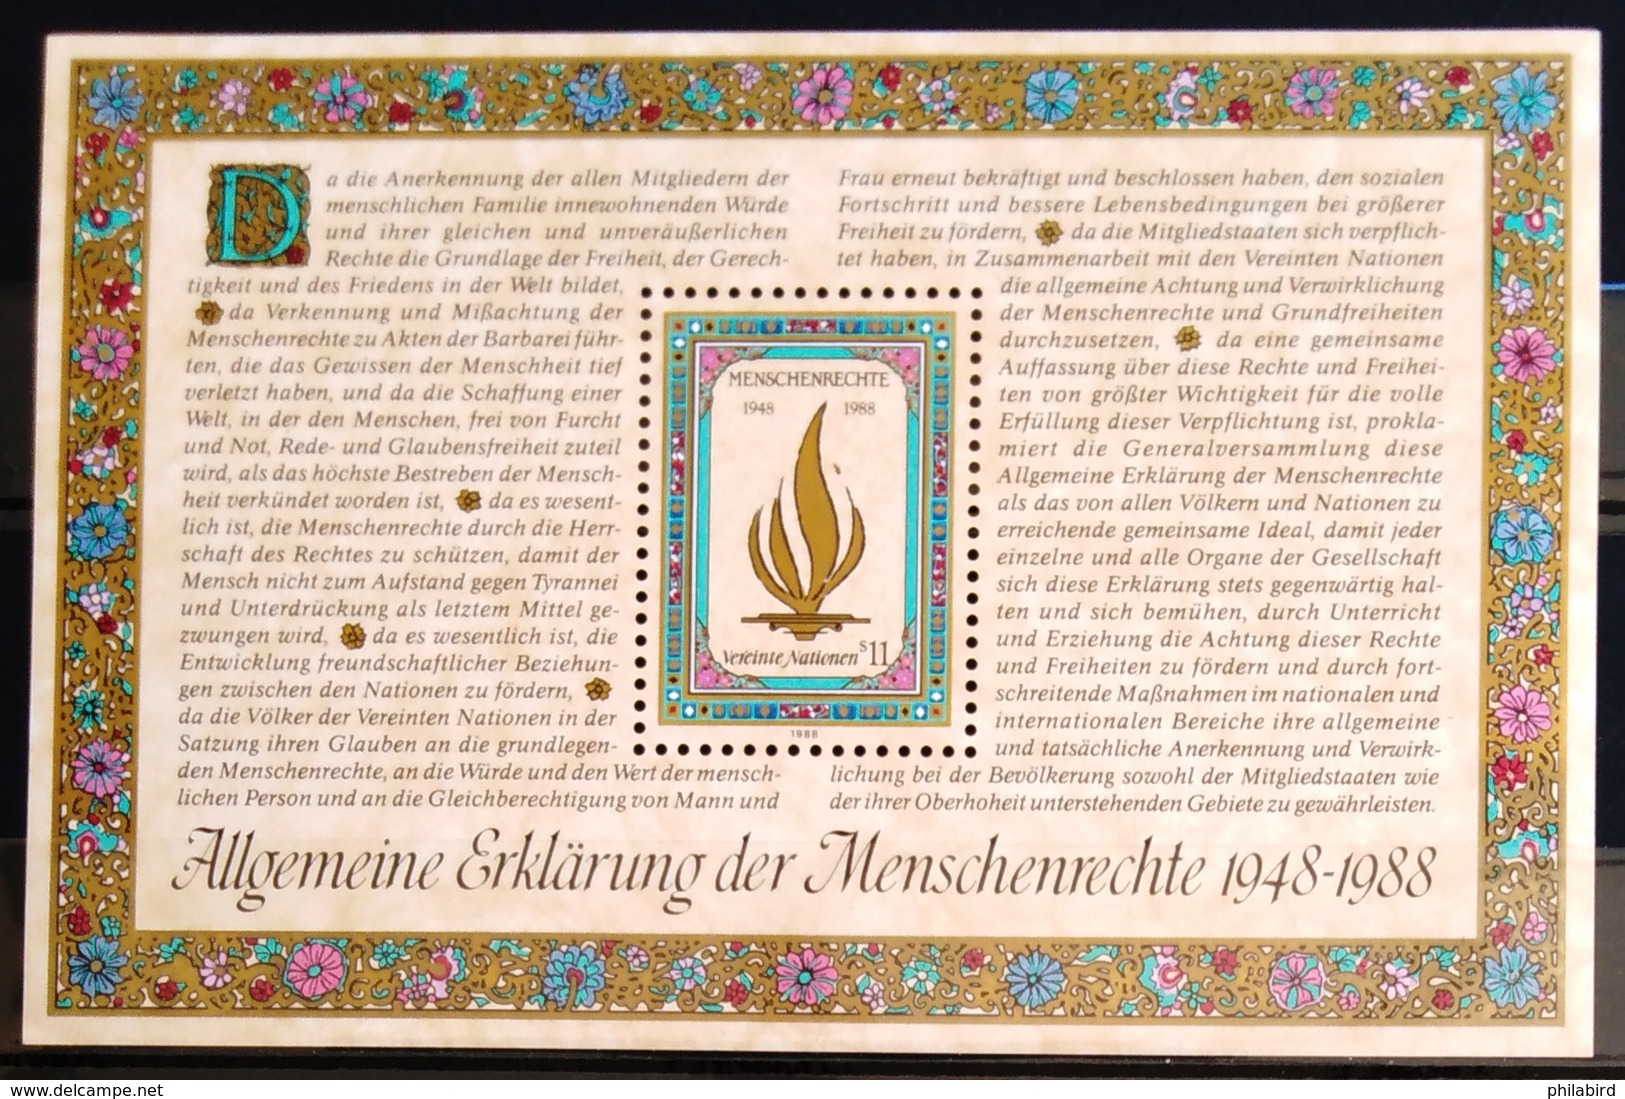 Da die Anerkennung der allen Mitgliedern der
menschlichen Familie innewohnenden Würde
und ihrer gleichen und unveräußerlichen
Rechte die Grundlage der Freiheit, der Gerech-
tigkeit und des Friedens in der Welt bildet,
da Verkennung und Mißachtung der
Menschenrechte zu Akten der Barbarei führ-
ten, die das Gewissen der Menschheit tief
verletzt haben, und da die Schaffung einer
Welt, in der den Menschen, frei von Furcht
und Not, Rede- und Glaubensfreiheit zuteil
wird, als das höchste Bestreben der Mensch-
heit verkündet worden ist, da es wesent-
lich ist, die Menschenrechte durch die Herr-
schaft des Rechtes zu schützen, damit der
Mensch nicht zum Aufstand gegen Tyrannei
und Unterdrückung als letztem Mittel ge-
zwungen wird, da es wesentlich ist, die
Entwicklung freundschaftlicher Beziehun-
gen zwischen den Nationen zu fördern,
da die Völker der Vereinten Nationen in der
Satzung ihren Glauben an die grundlegen-
den Menschenrechte, an die Würde und den Wert der mensch-
lichen Person und an die Gleichberechtigung von Mann und
Frau erneut bekräftigt und beschlossen haben, den sozialen
Fortschritt und bessere Lebensbedingungen bei größerer
Freiheit zu fördern, da die Mitgliedstaaten sich verpflich-
tet haben, in Zusammenarbeit mit den Vereinten Nationen
die allgemeine Achtung und Verwirklichung
der Menschenrechte und Grundfreiheiten
durchzusetzen, da eine gemeinsame
Auffassung über diese Rechte und Freihei-
ten von größter Wichtigkeit für die volle
Erfüllung dieser Verpflichtung ist, prokla-
miert die Generalversammlung diese
Allgemeine Erklärung der Menschenrechte
als das von allen Völkern und Nationen zu
erreichende gemeinsame Ideal, damit jeder
einzelne und alle Organe der Gesellschaft
sich diese Erklärung stets gegenwärtig hal-
ten und sich bemühen, durch Unterricht
und Erziehung die Achtung dieser Rechte
und Freiheiten zu fördern und durch fort-
schreitende Maßnahmen im nationalen und
internationalen Bereiche ihre allgemeine
und tatsächliche Anerkennung und Verwirk-
lichung bei der Bevölkerung sowohl der Mitgliedstaaten wie
der ihrer Oberhoheit unterstehenden Gebiete zu gewährleisten.
MENSCHENRECHTE
1948 1988
Vereinte Nationen S11
1988
Allgemeine Erklärung der Menschenrechte 1948-1988
www.delcampe.net
philabird